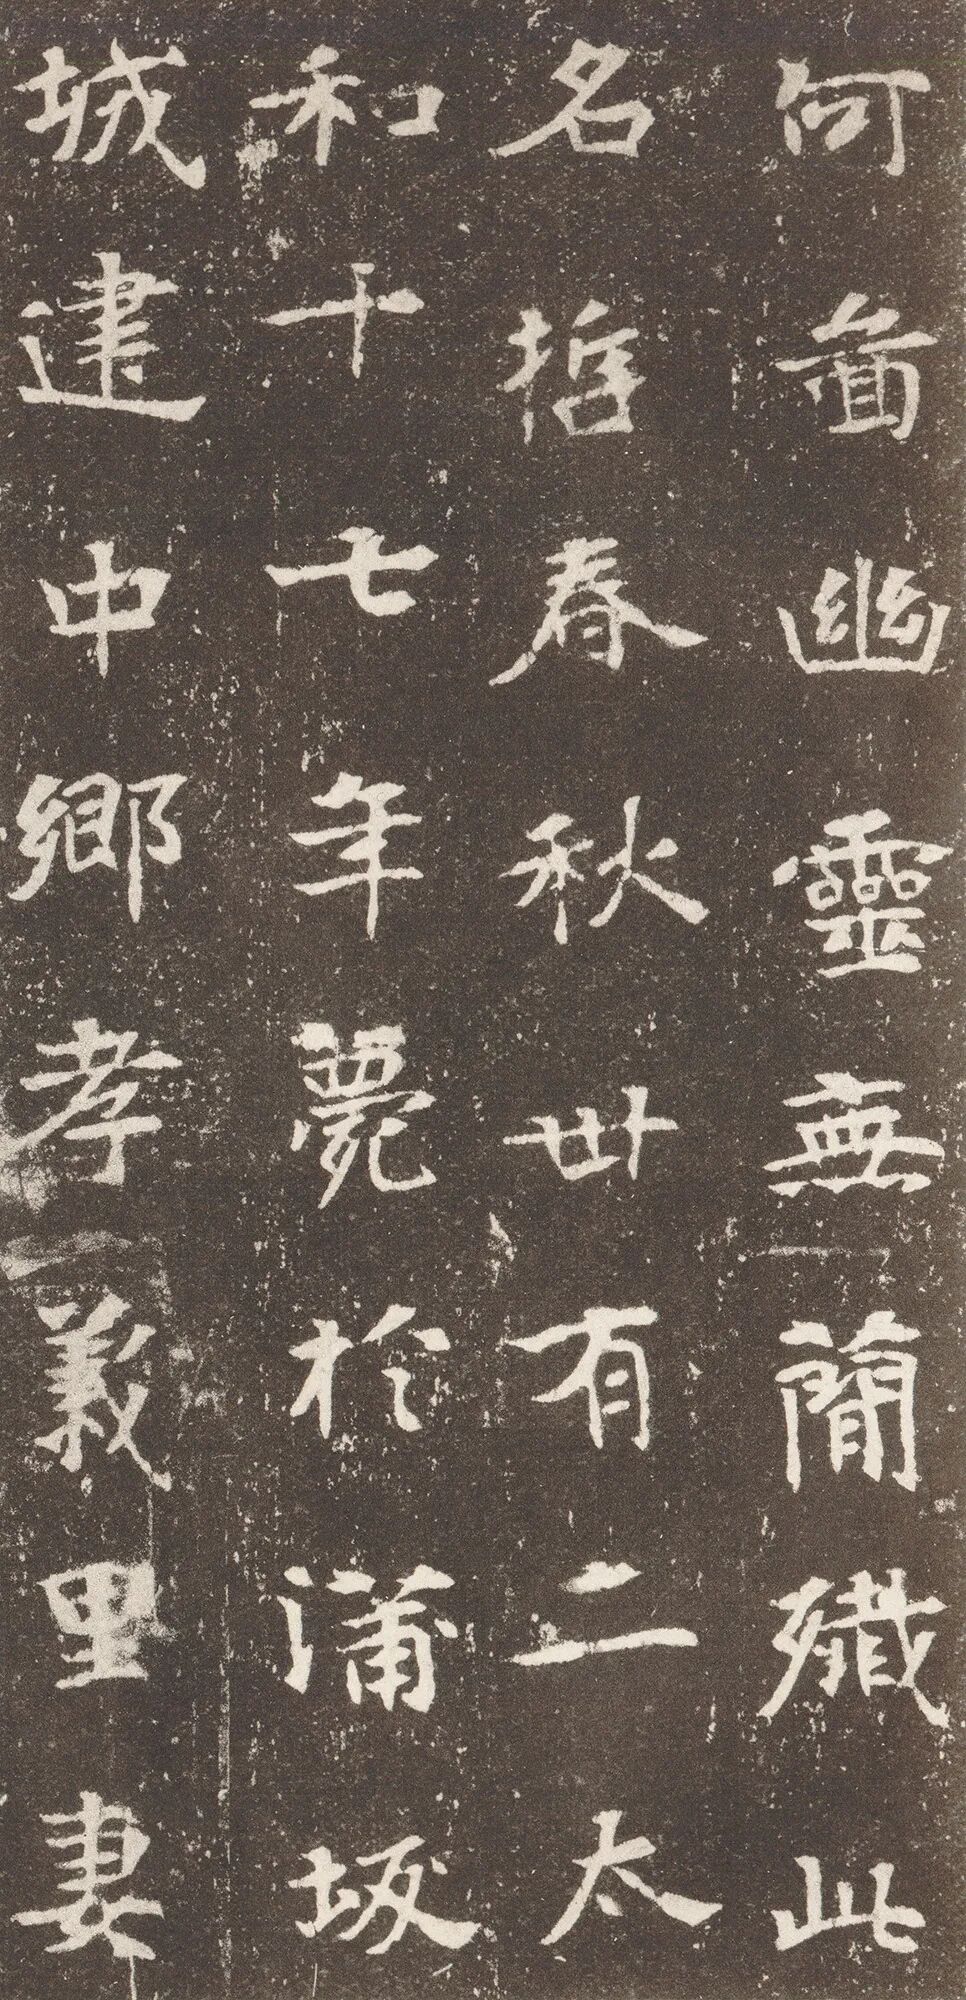 何啚幽靈無簡殲此
名哲春秋卅有二太
和十七年薨於蒲坂
城建中鄉孝義里妻